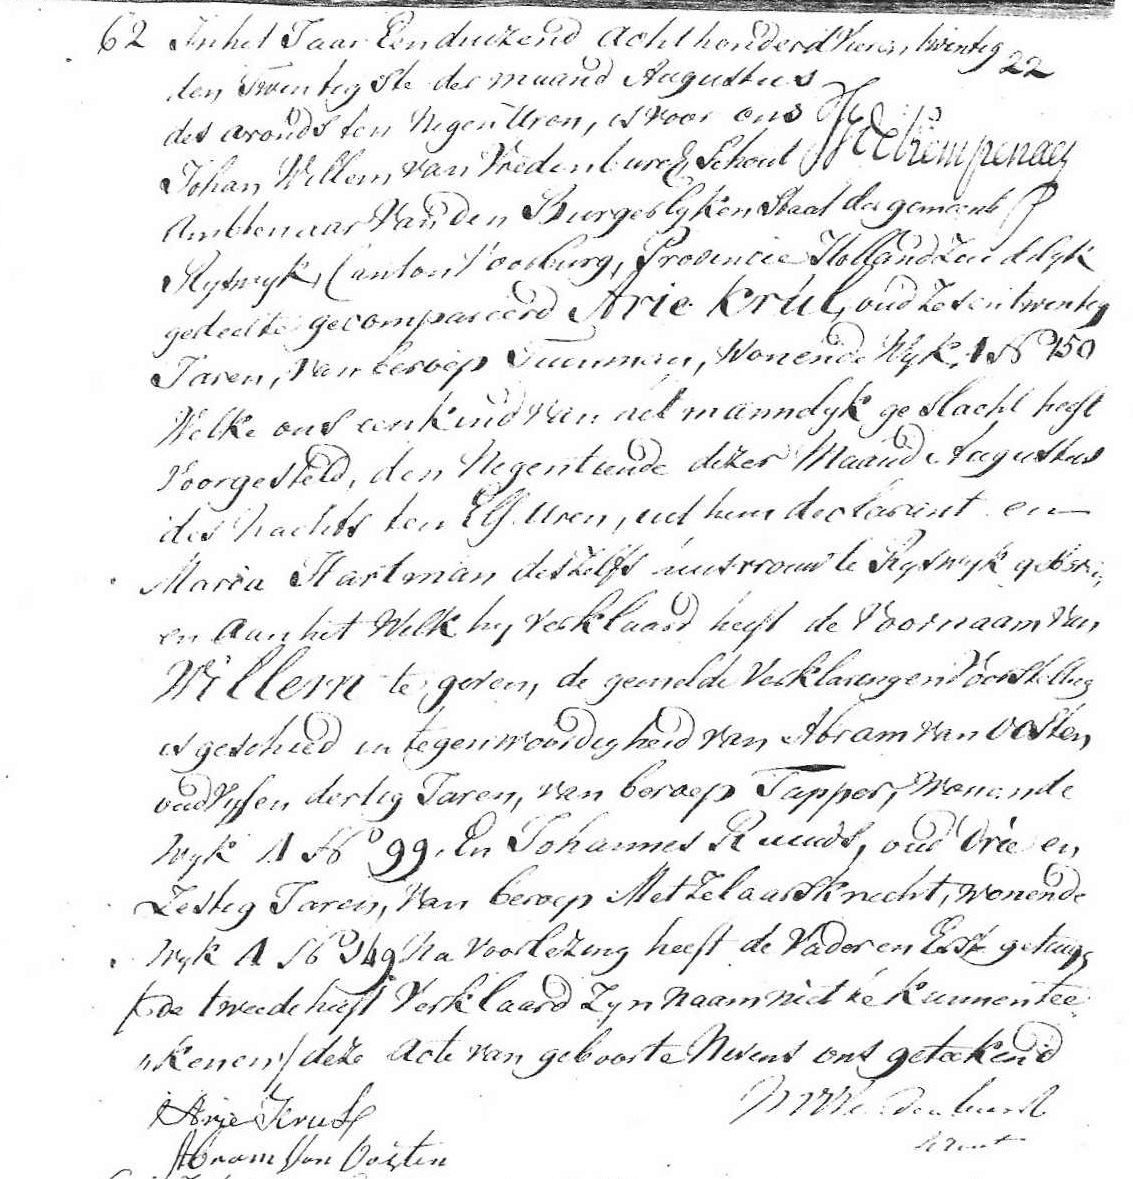 62 In het Jaar Eenduizend Achthonderd Vierentwintig
22
den Twintigste der maand Augustus
des avonds ten Negen Uren, is voor ons
Johan Willem van Vredenburch Schout
Ambtenaar van den Burgerlyken Staat der gemeente
Ryswyk, Canton Voorburg, Provincie Holland Zuidelyk
gedeelte gecompareerd Arie Krul, oud Zesentwintig
Jaren, van beroep Tuinman, Wonende Wyk A No 150
Welke ons een kind van het mannelyk geslacht heeft
Voorgesteld, den Negentiende dezer Maand Augustus
des Nachts ten Elf Uren, uit hem declarant en
Maria Hartman deszelfs huisvrouw te Ryswyk geboren,
en aan het Welk hy verklaard heeft de Voornaam van
Willem te geven, de gemelde Verklaring en Voorstelling
is geschied in tegenwoordigheid van Abram van Oosten
oud Vyf en dertig Jaren, van beroep Tapper, Wonende
Wyk A No 99. En Johannes Ruuds, oud Drie en
Zestig Jaren, Van beroep Metzelaarsknecht, wonende
Wyk A No 149 Na voorlezing heeft de Vader en Eerste getuige
/:de tweede heeft Verklaard Zyn naam niet te kunnen tee
kenen/ deze Acte van geboorte Nevens ons getekend
Arie Krul
Abram Van Oosten